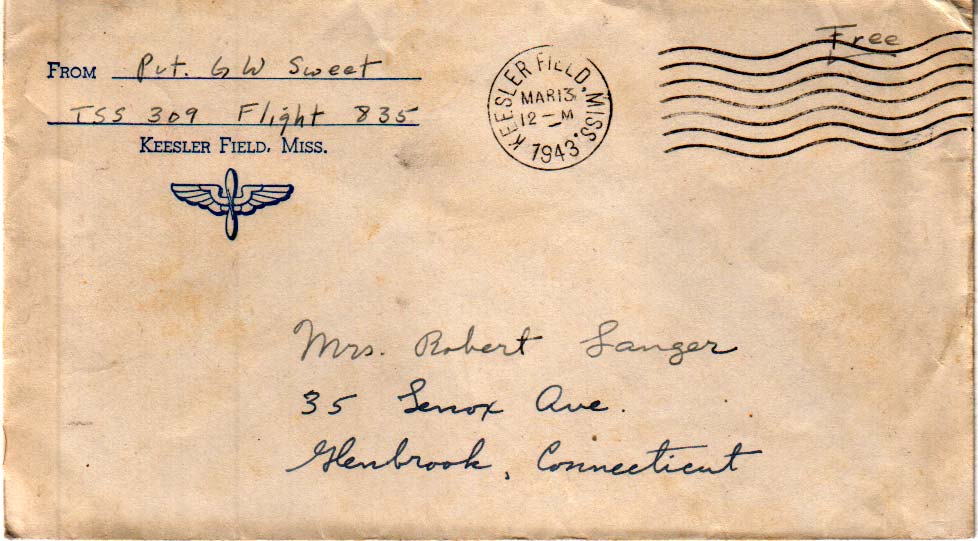 FROM Pvt. G W Sweet
TSS 309 Flight 835
KEESLER FIELD, MISS.
KEESLER FIELD, MISS.
MAR 13
12 – M
1943
Free
Mrs. Robert Sanger
35 Lenox Ave.
Glenbrook, Connecticut